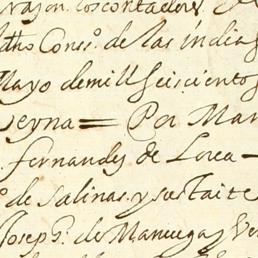 razon. los contadores
dho Conso. de las indias
Mayo de mill seiscientos
Reyna = Por Man
fernandez de Lorea
de Salinas. y sustaite
Joseph: de